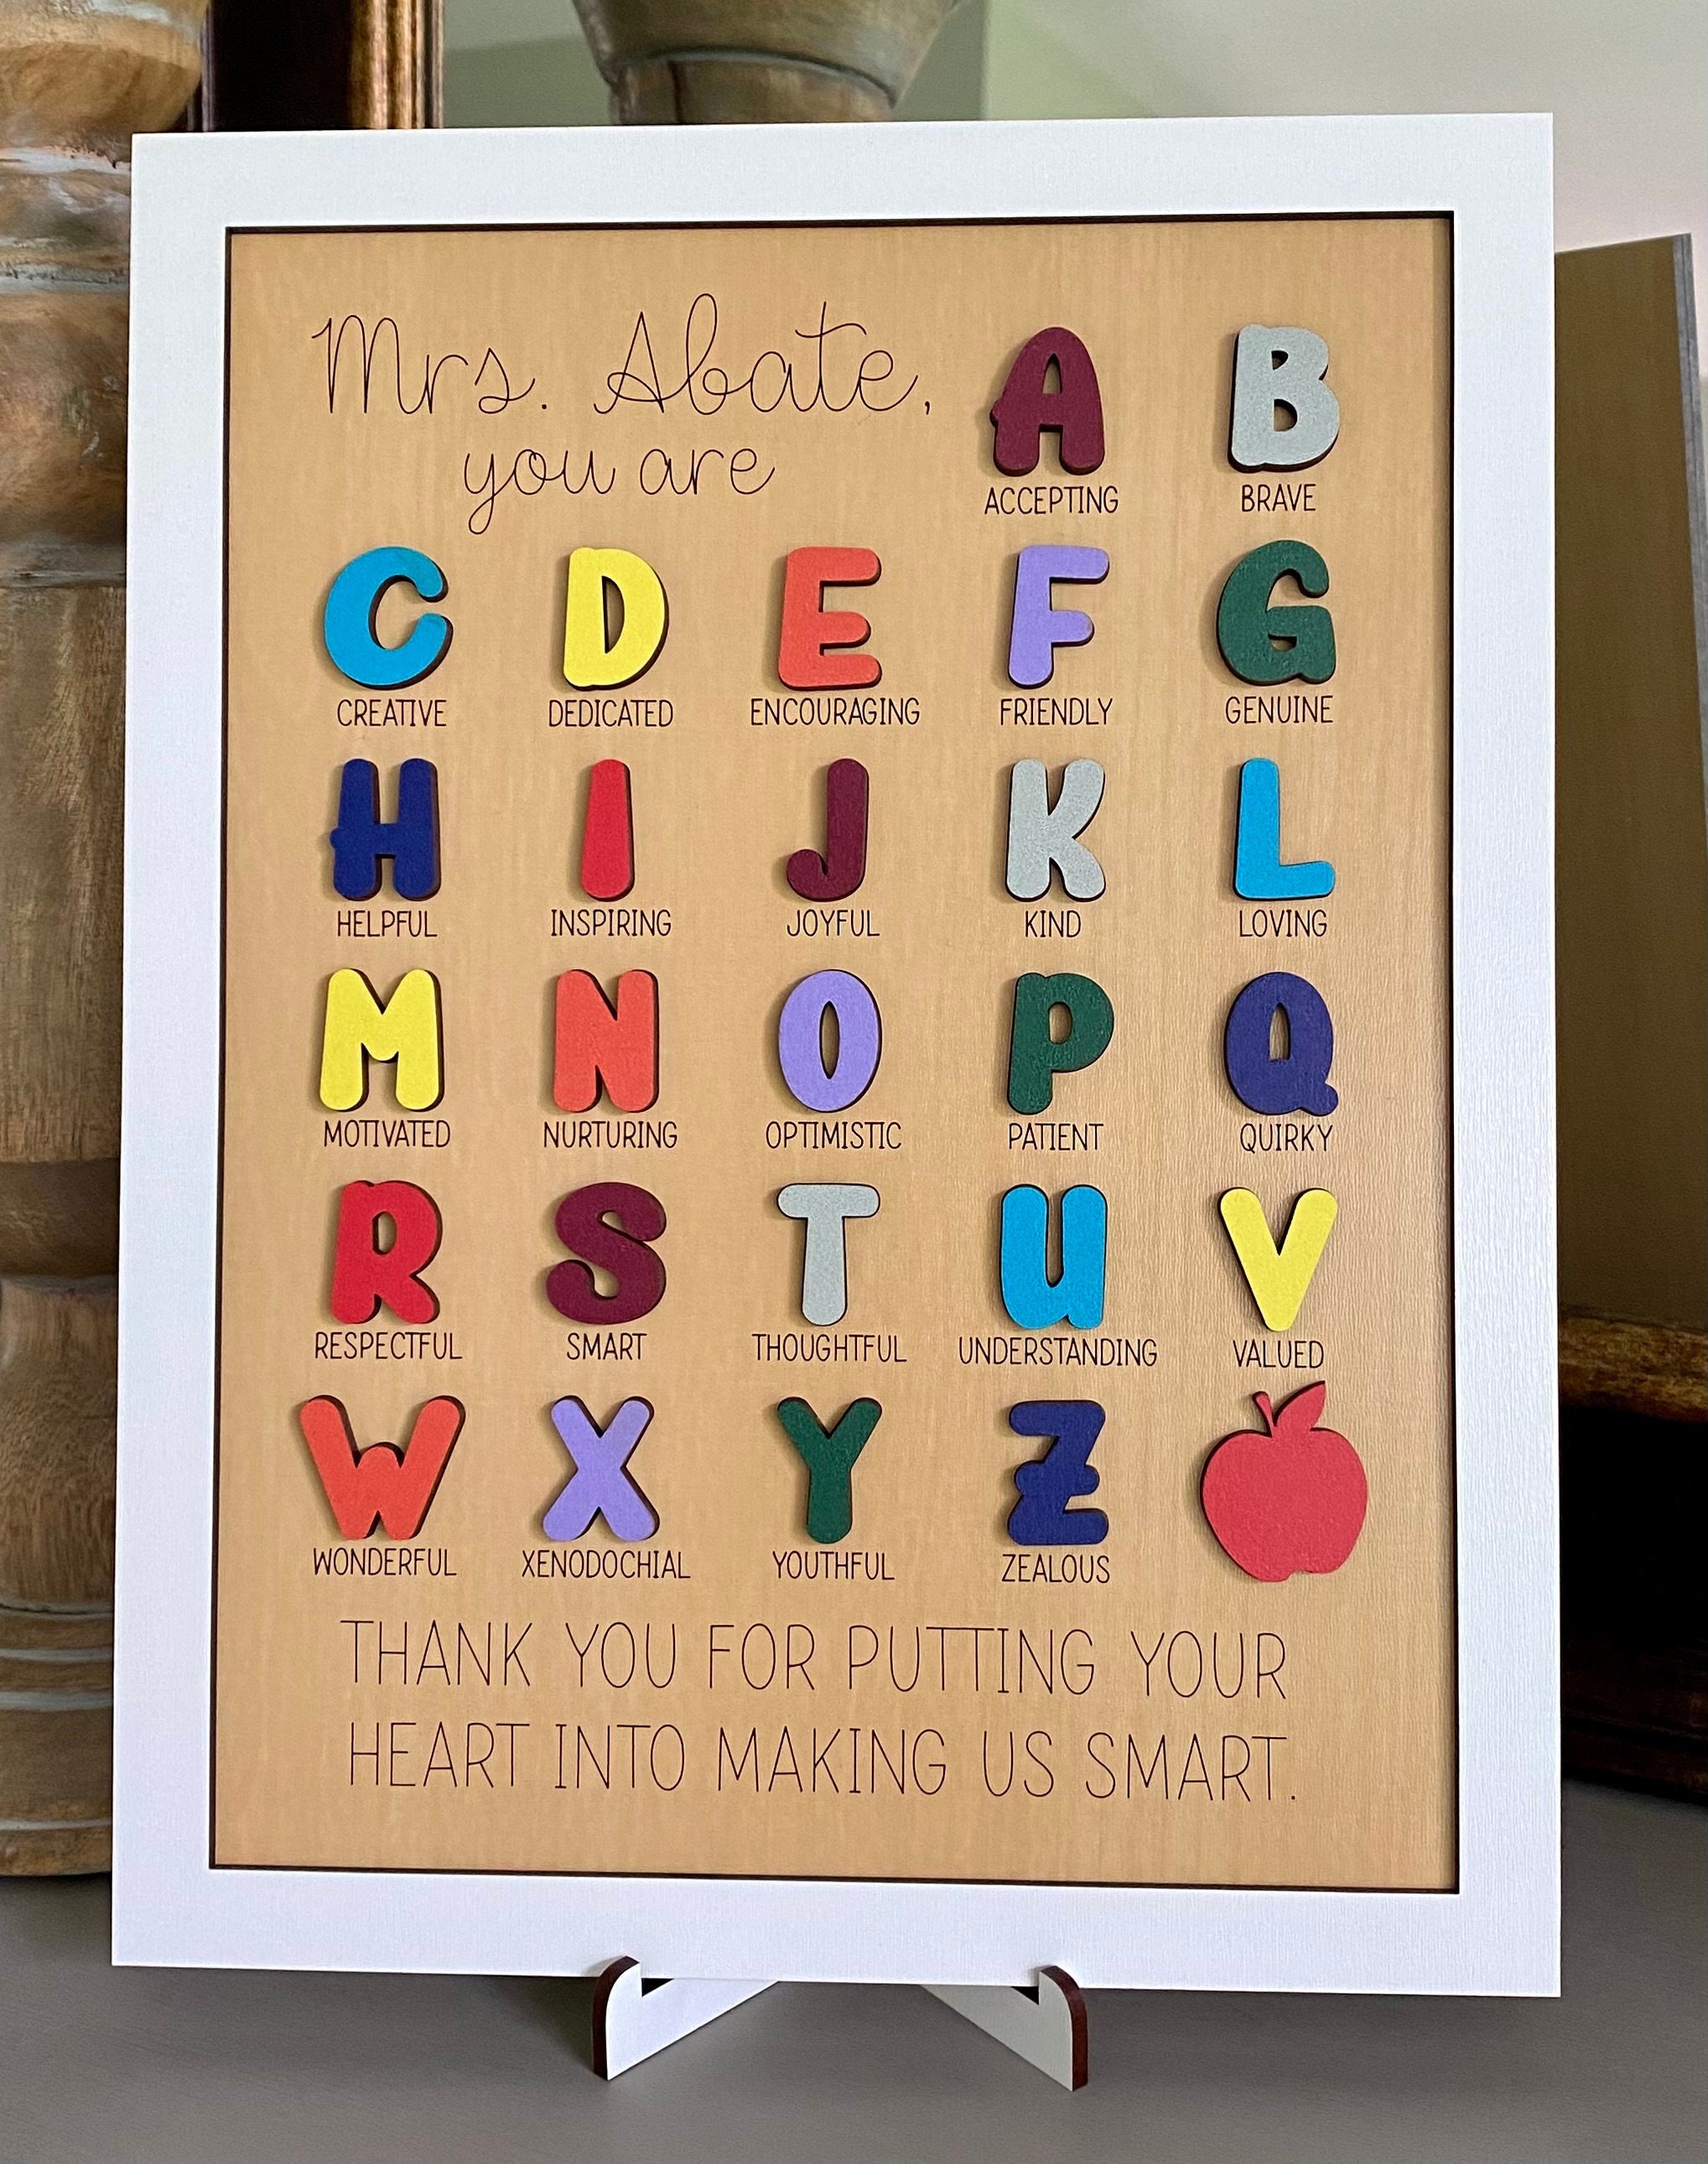 Mrs. Abate,
you are
A B
ACCEPTING BRAVE
C D E F G
CREATIVE DEDICATED ENCOURAGING FRIENDLY GENUINE
H I J K L
HELPFUL INSPIRING JOYFUL KIND LOVING
M N O P Q
MOTIVATED NURTURING OPTIMISTIC PATIENT QUIRKY
R S T U V
RESPECTFUL SMART THOUGHTFUL UNDERSTANDING VALUED
W X Y Z
WONDERFUL XENODOCHIAL YOUTHFUL ZEALOUS
THANK YOU FOR PUTTING YOUR
HEART INTO MAKING US SMART.